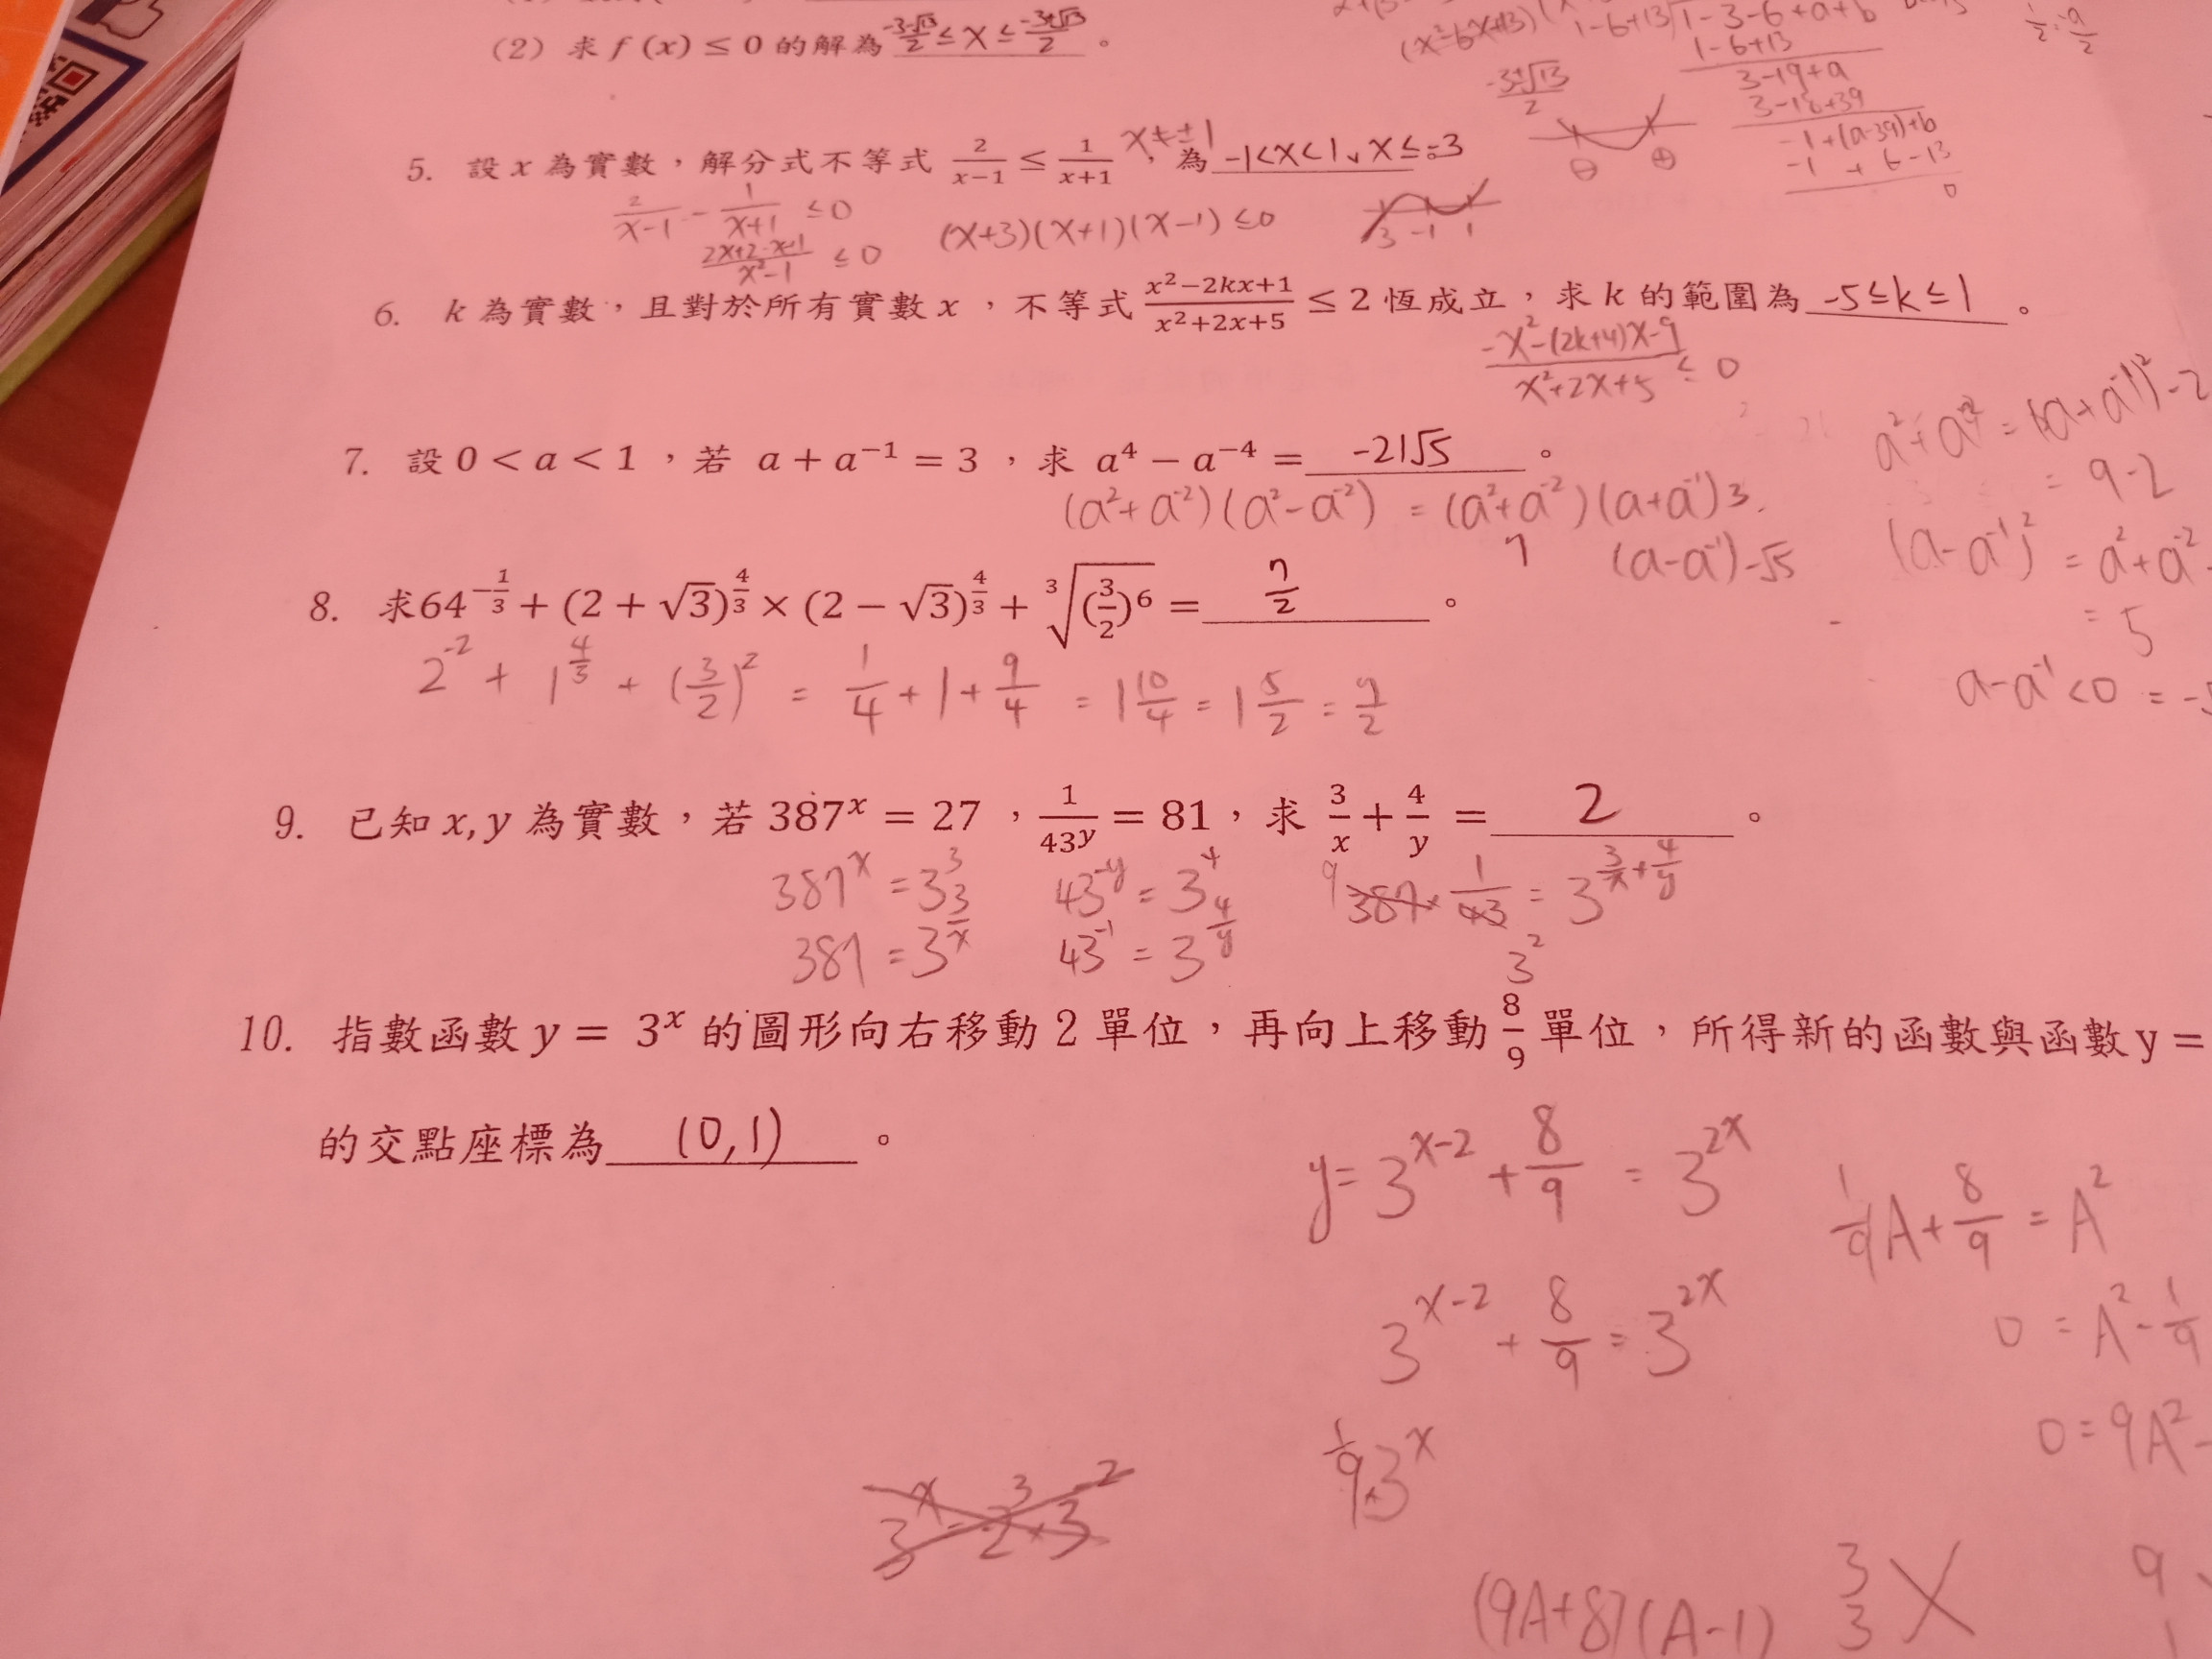 (2) 求 f (x) ≤ 0 的解為 (-3-√13)/2 ≤ x ≤ (-3+√13)/2 。
(x²-6x+13)
1-6+13 1-3-6+a+b
1-6+13
3-19+a
3-18+39
-1+(a-39)+b
-1 + 6-13
0
(-3±√13)/2
5. 設 x 為實數，解分式不等式 2/(x-1) ≤ 1/(x+1)，為 -1<x<1, x≤-3
x≠±1
2/(x-1) - 1/(x+1) ≤0
(2x+2-x+1)/(x²-1) ≤ 0
(x+3)(x+1)(x-1) ≤0
-3 -1 1
6. k 為實數，且對於所有實數 x ，不等式 (x²-2kx+1)/(x²+2x+5) ≤ 2 恆成立，求 k 的範圍為 -5≤k≤1 。
(-x²-(2k+4)x-9)/(x²+2x+5) ≤ 0
7. 設 0 < a < 1 ，若 a + a⁻¹ = 3 ，求 a⁴ − a⁻⁴ = -21√5 。
(a²+a⁻²)(a²-a⁻²) = (a²+a⁻²)(a+a⁻¹)3
7 (a-a⁻¹)-√5
a²+a⁻² = (a+a⁻¹)²-2
= 9-2
(a-a⁻¹)² = a²+a⁻²
= 5
a-a⁻¹<0 =
8. 求64^(-1/3) + (2 + √3)^(4/3) × (2 − √3)^(4/3) + ³√((3/2)⁶) = 7/2 。
2⁻² + 1^(4/3) + (3/2)² = 1/4 + 1 + 9/4 = 1 10/4 = 1 5/2 = 7/2
9. 已知 x, y 為實數，若 387ˣ = 27 ，1/43ʸ = 81，求 3/x + 4/y = 2 。
387ˣ = 3³ 43⁻ʸ = 3⁴ 9 387× 1/43 = 3^(3/x + 4/y)
387 = 3^(3/x) 43⁻¹ = 3^(4/y) 3²
10. 指數函數 y = 3ˣ 的圖形向右移動 2 單位，再向上移動 8/9 單位，所得新的函數與函數 y =
的交點座標為 (0,1) 。
y= 3^(x-2) + 8/9 = 3^(2x)
1/9 A + 8/9 = A²
3^(x-2) + 8/9 = 3^(2x)
0 = A² - 1/9
0 = 9A² -
1/9 · 3ˣ
(9A+8)(A-1)